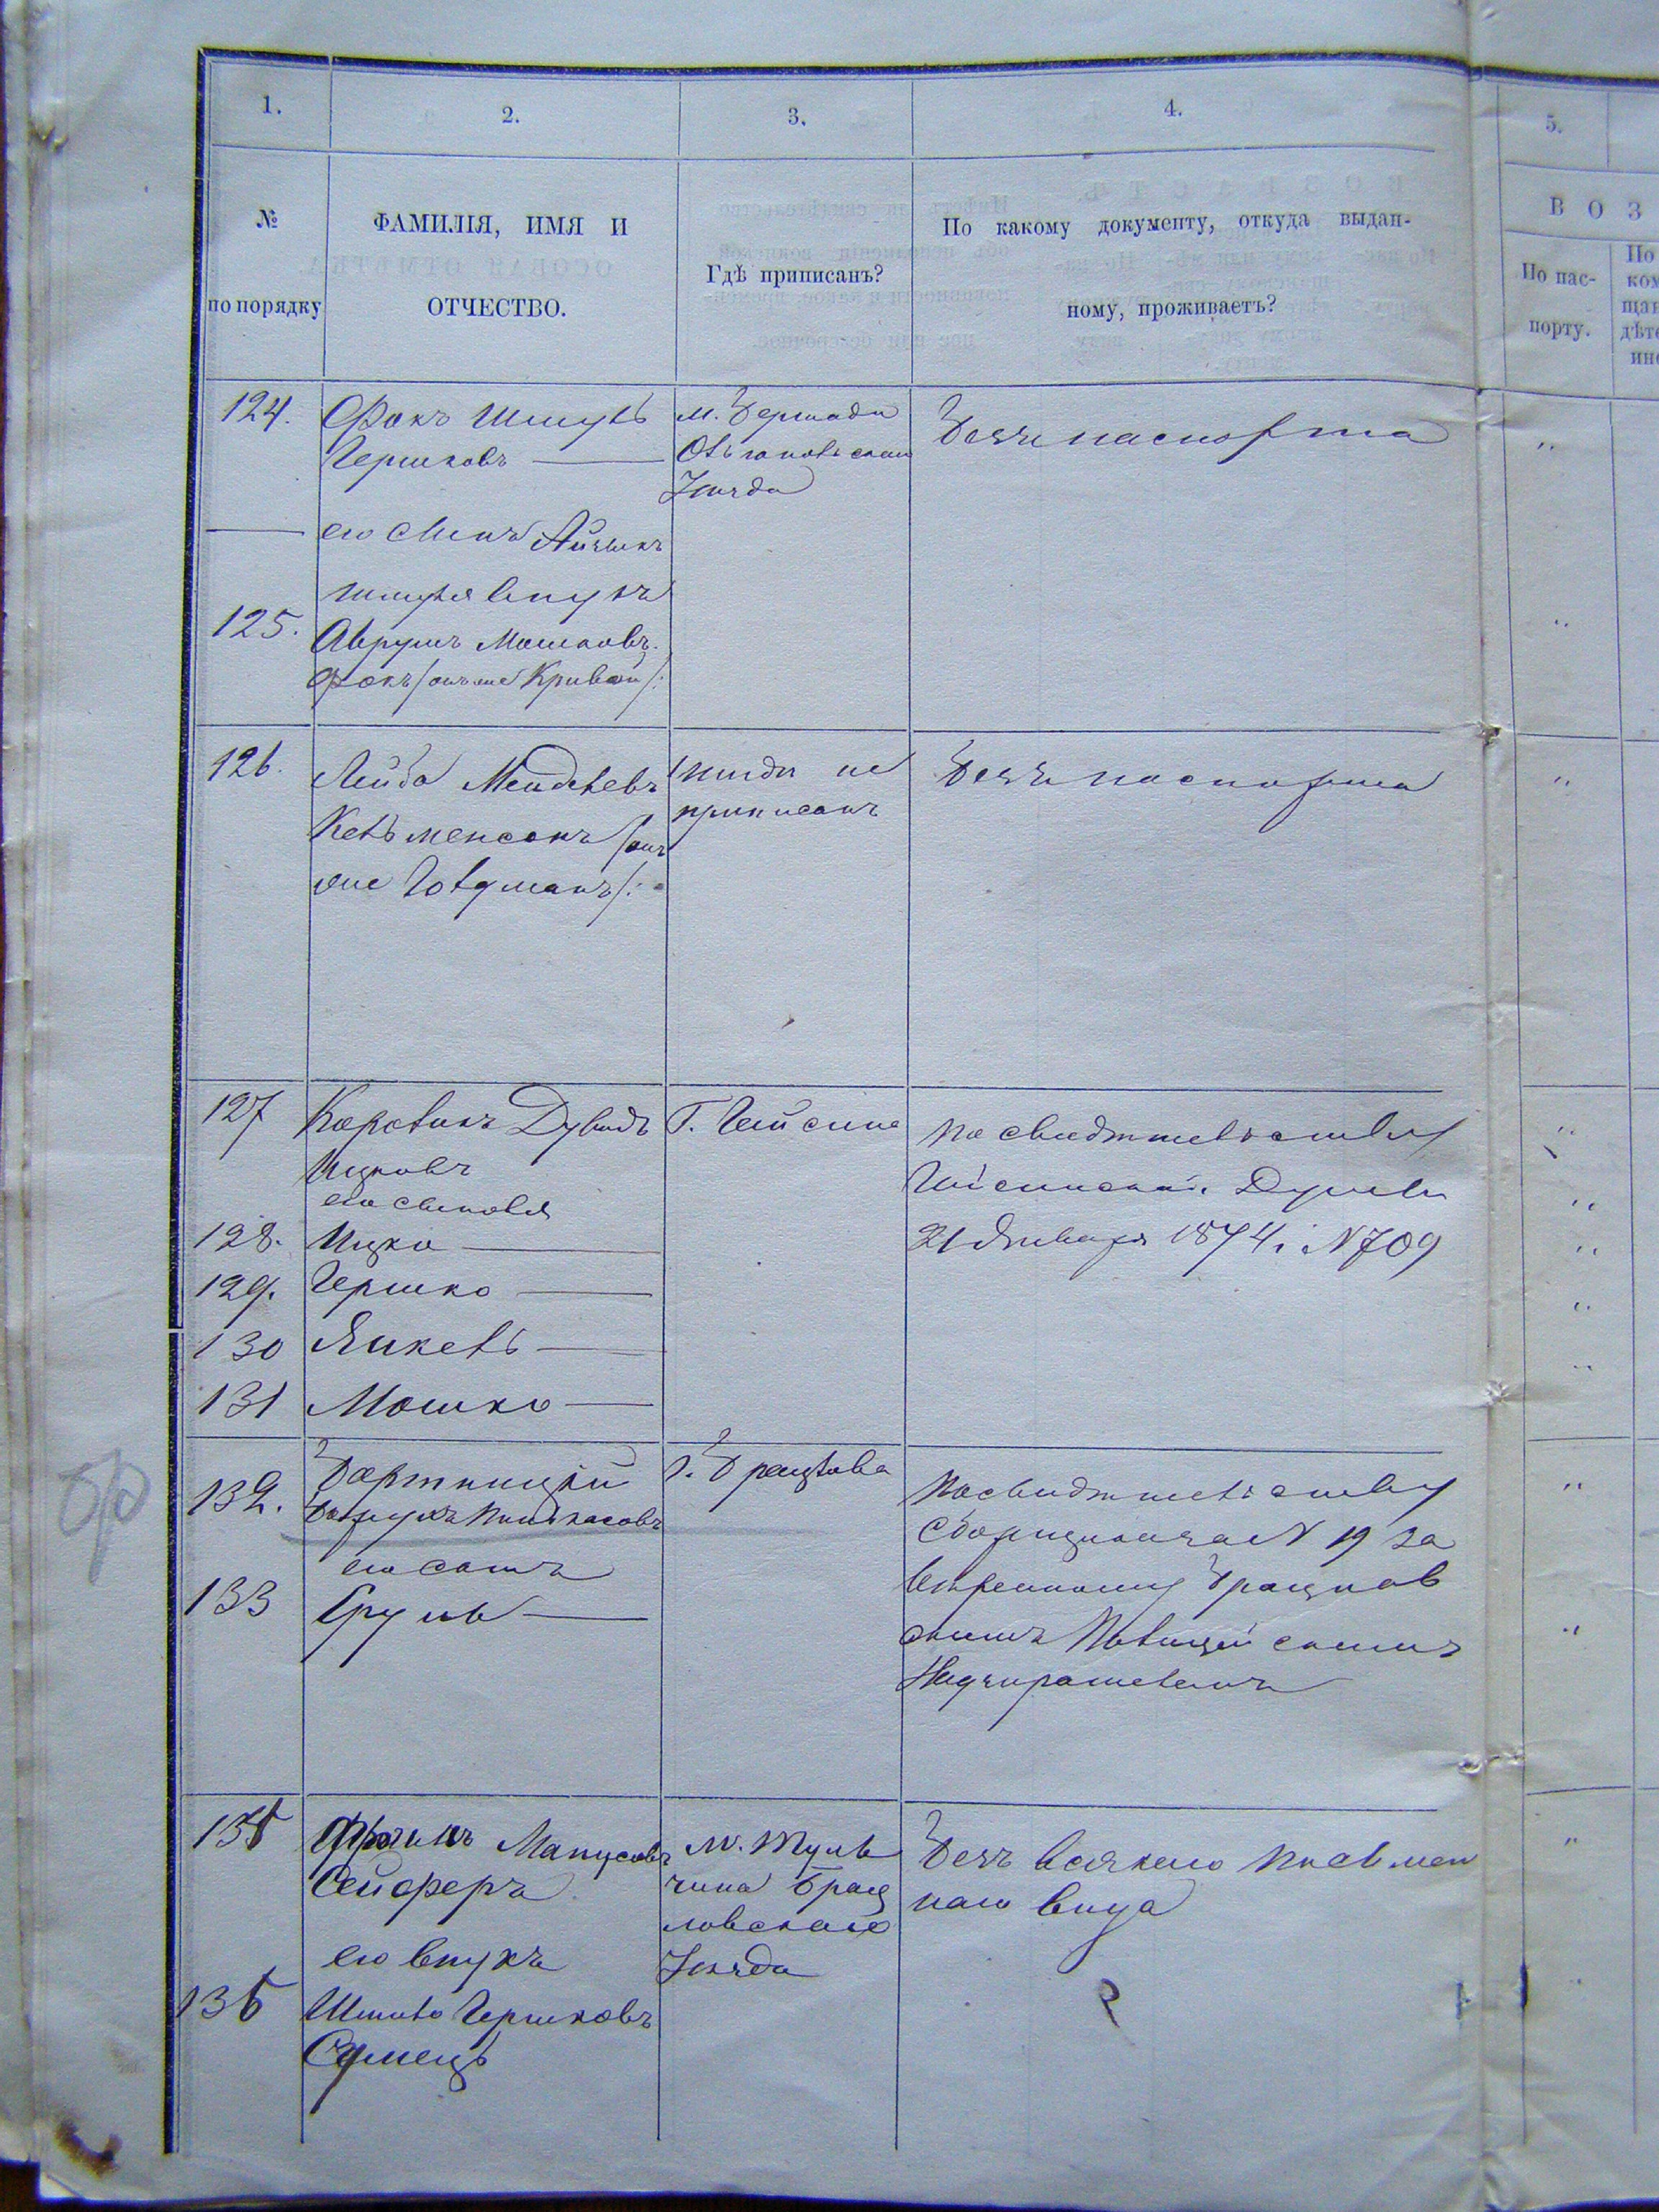 1.
2.
3.
4.
5.
№
по порядку
ФАМИЛІЯ, ИМЯ И
ОТЧЕСТВО.
Гдѣ приписанъ?
По какому документу, откуда выдан-
ному, проживаетъ?
В О З
По пас-
порту.
По
ком
щан
дѣте
124.
Фокъ Шмуль
Гершковъ
м. Бершади
Ольгопольскаго
Уѣзда
Безъ паспорта
его сынъ Айзикъ
Шмуля внукъ
125.
Аврумъ Мошковъ
Фокъ /онъ же Кривой/:
126.
Лейба Менделевъ
Кельменсонъ /онъ
же Голдманъ/:
нигде не
приписанъ
Безъ паспорта
127
Коровикъ Дувидъ
Ицковъ
его сыновья
Г. Гайсина
по свидетельству
Гайсинской Думы
21 Января 1874 г. N 709
128.
Ицко
129.
Гершко
130
Янкель
131
Мошко
132.
Бортницкій
Пинкасовъ
его сынъ
г. Брацлава
По свидетельству
Сборщика за N 19 за
веренному Брацлав
скимъ Полицейскимъ
Надзирателемъ
133
Сруль
135
Фроимъ Манусовъ
Сейферъ
м. Туль
чина Брац
лавскаго
Уѣзда
Безъ всякаго письмен
наго вида
его внукъ
136
Шмиль Гершковъ